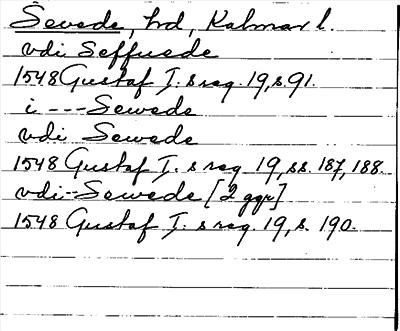 Sevede, hd, Kalmar l.
vdi Seffuede
1548 Gustaf I:s reg. 19, s. 91.
i --- Sewede
vdi Sewede
1548 Gustaf I:s reg 19, ss. 187, 188.
vdi -- Sewede [2 ggr]
1548 Gustaf I:s reg. 19, s. 190.